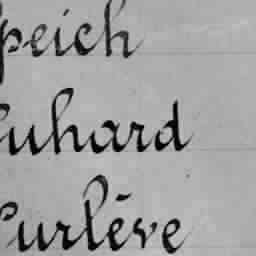 peich
uhard
urlève